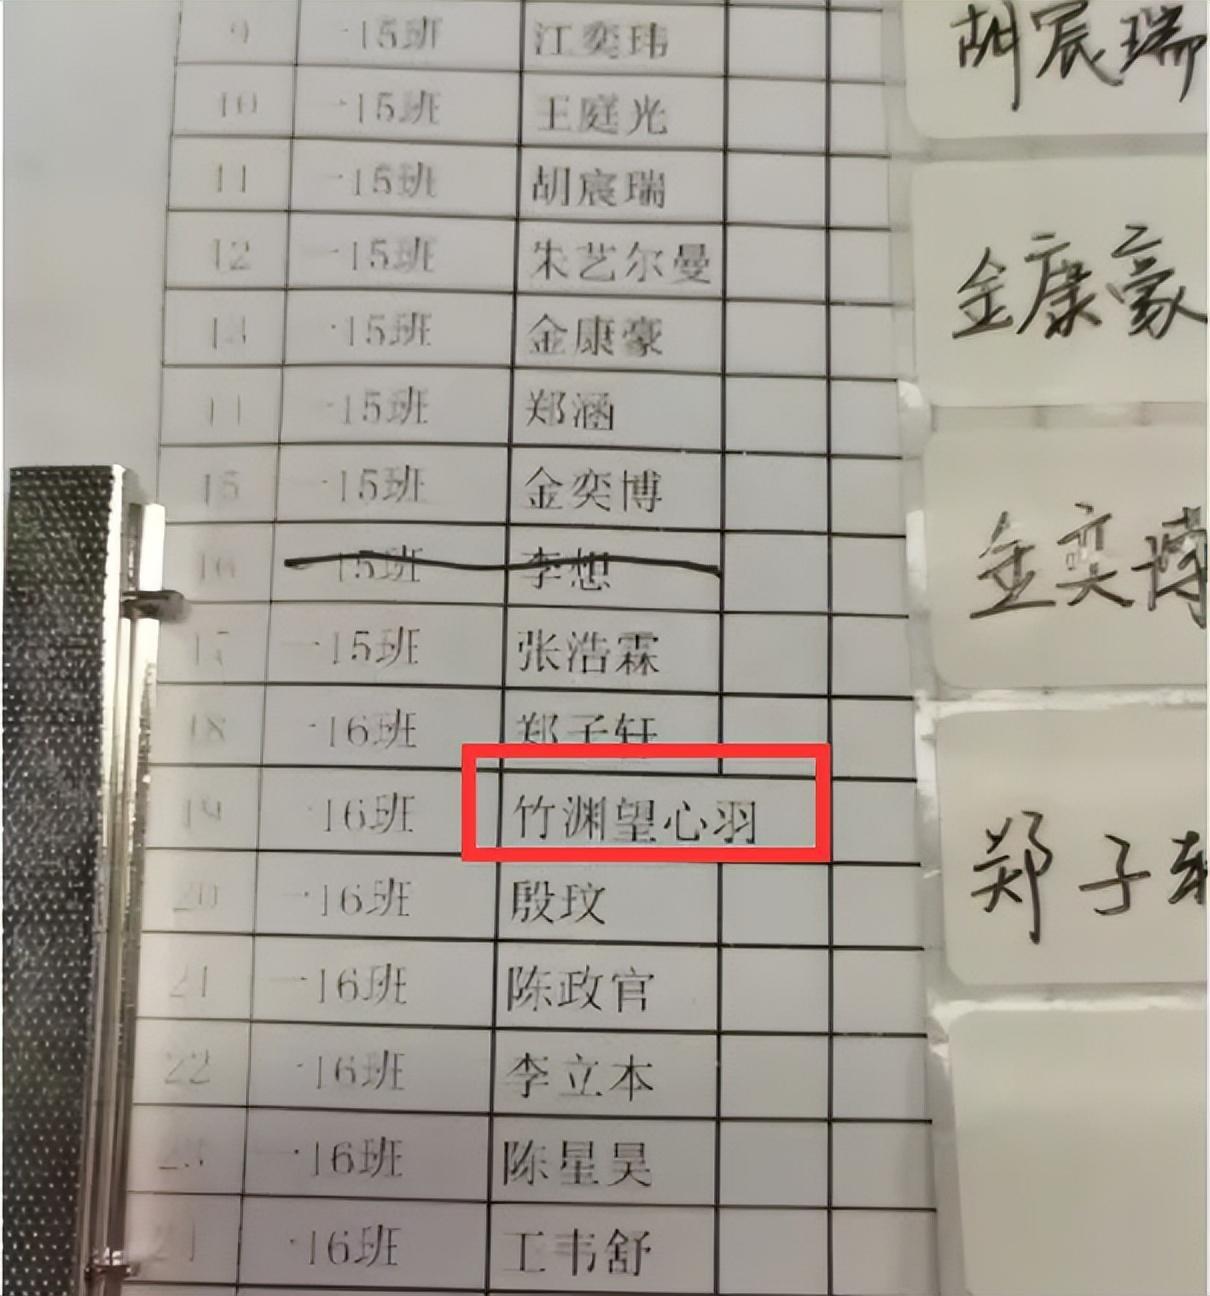 9 一15班 江奕玮
10 一15班 王庭光
11 一15班 胡宸瑞
12 一15班 朱艺尔曼
13 一15班 金康豪
15班 郑涵
15 一15班 金奕博
16 15班 李想
17 一15班 张浩霖
18 一16班 郑子轩
19 16班 竹渊望心羽
20 一16班 殷玟
21 一16班 陈政官
22 一16班 李立本
一16班 陈星昊
16班 韦舒
胡宸瑞
金康豪
金奕博
郑子